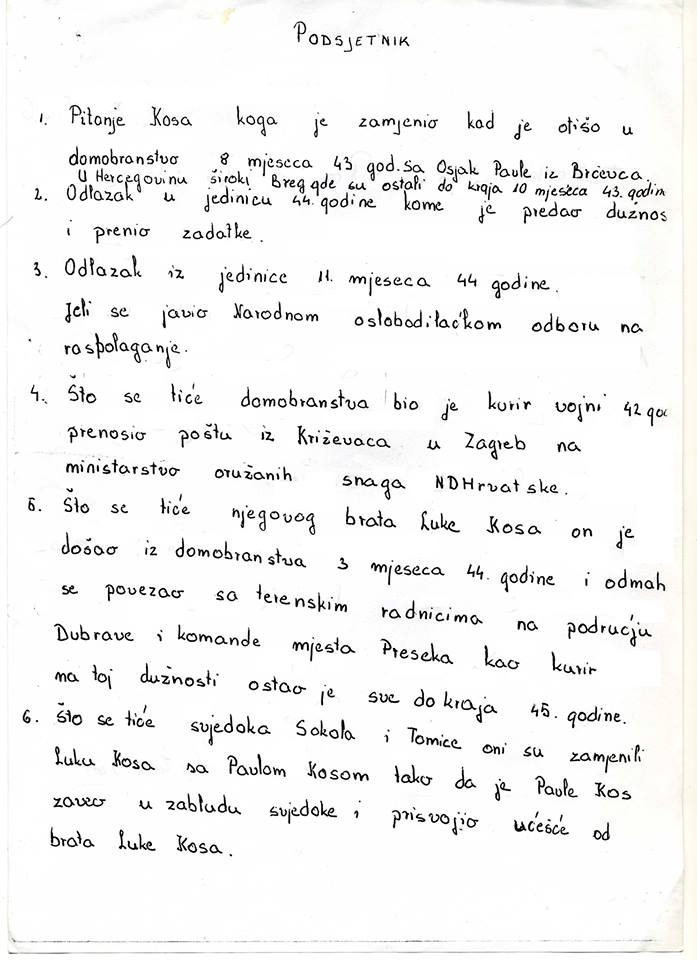 PODSJETNIK
1. Pitanje Kosa koga je zamjenio kad je otišo u
domobranstvo 8 mjeseca 43 god. sa Osjak Paule iz Brćevca.
U Hercegovinu široki Breg gde su ostali do kraja 10 mjeseca 43. godin
2. Odlazak u jedinicu 44. godine kome je predao dužnos
i prenio zadatke.
3. Odlazak iz jedinice 11. mjeseca 44 godine.
Jeli se javio Narodnom oslobodilaćkom odboru na
raspolaganje.
4. Što se tiće domobranstva bio je kurir vojni 42 god
prenosio poštu iz Križevaca u Zagreb na
ministarstvo oružanih snaga NDHrvatske.
5. Što se tiće njegovog brata Luke Kosa on je
došao iz domobranstva 3 mjeseca 44. godine i odmah
se povezao sa terenskim radnicima na podrućju
Dubrave i komande mjesta Preseka kao kurir
na toj dužnosti ostao je sve do kraja 45. godine.
6. Što se tiće svjedoka Sokola i Tomice oni su zamjenili
Luku Kosa sa Paulom Kosom tako da je Paule Kos
zaveo u zabludu svjedoke i prisvojio ućešće od
brata Luke Kosa.